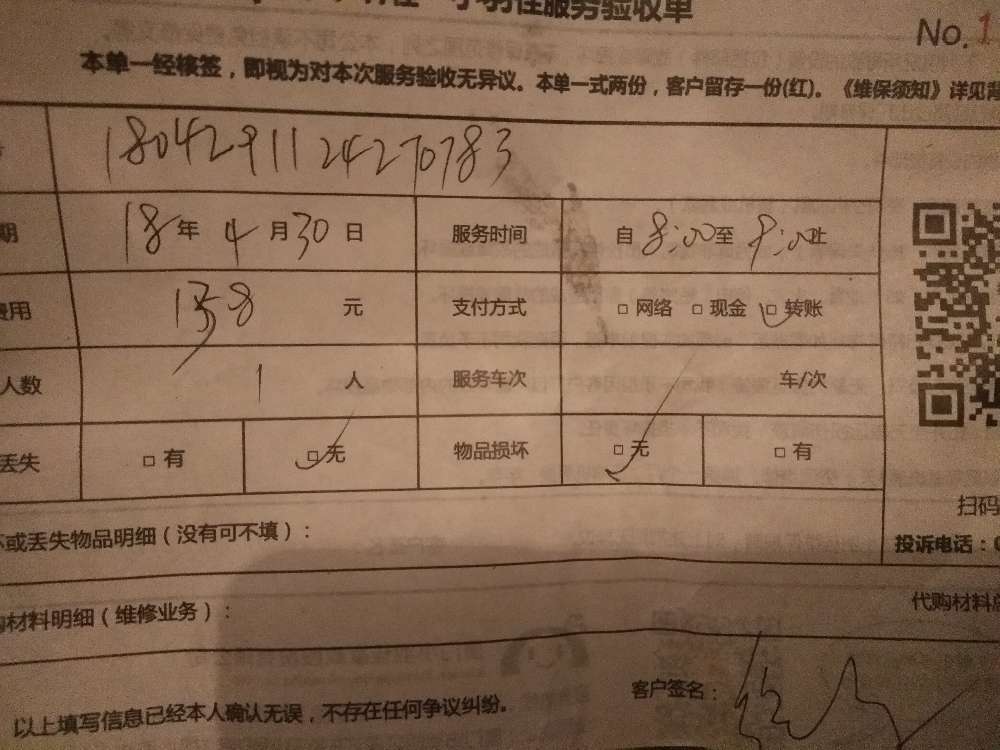 服务验收单
No.1
本单一经核签，即视为对本次服务验收无异议。本单一式两份，客户留存一份(红)。《维保须知》详见背
1804291124270783
期 18年4月30日 服务时间 自8:00至9:00止
费用 138元 支付方式 □网络 □现金 □转账
人数 1人 服务车次 车/次
丢失 □有 □无 物品损坏 □无 □有
扫码
坏或丢失物品明细（没有可不填）：
投诉电话：0
购材料明细（维修业务）：
代购材料总
客户签名：
以上填写信息已经本人确认无误，不存在任何争议纠纷。